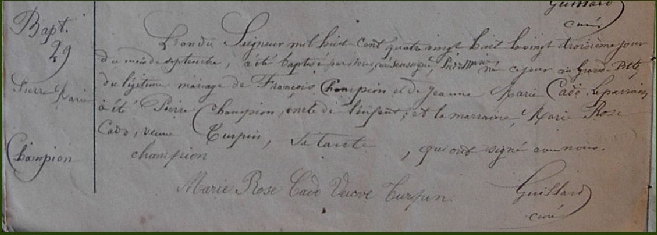 Guillard
curé
Bapt.
29
Pierre Marie
Champion
L'an du Seigneur mil huit cent quatre vingt huit le vingt troisième jour
du mois de septembre, a été baptisé par nous, né ce jour au Grand
du légitime mariage de François Champion et de Jeanne Marie Cado. Le parrain
a été Pierre Champion, oncle de l'enfant, et la marraine, Marie Rose
Cado, veuve Turpin, sa tante, qui ont signé avec nous.
champion
Marie Rose Cado Veuve Turpin
Guillard
curé